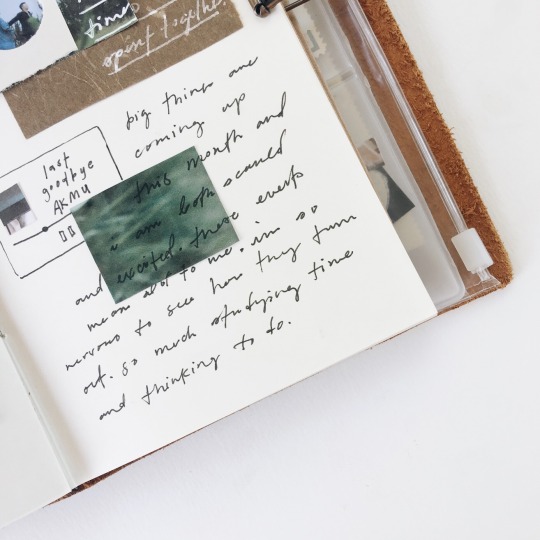 time
spent together.
last
goodbye
AKMU
big things are
coming up
this month and
i am both scared
and excited. these events
mean a lot to me. im so
nervous to see how they turn
out. so much studying time
and thinking to do.